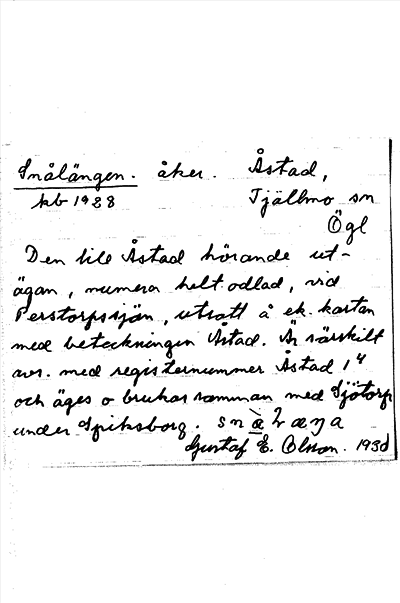 Snålängen. åker. Åstad,
kb 1928 Tjällmo sn
Ögl
Den till Åstad hörande ut-
ägan, numera helt odlad, vid
Perstorpssjön, utsatt å ek. kartan
med beteckningen Åstad. Är särskilt
avs. med registernummer Åstad 1⁴
och äges o brukas samman med Sjötorp
under Spiksborg.
Gustaf E. Olsson. 1930